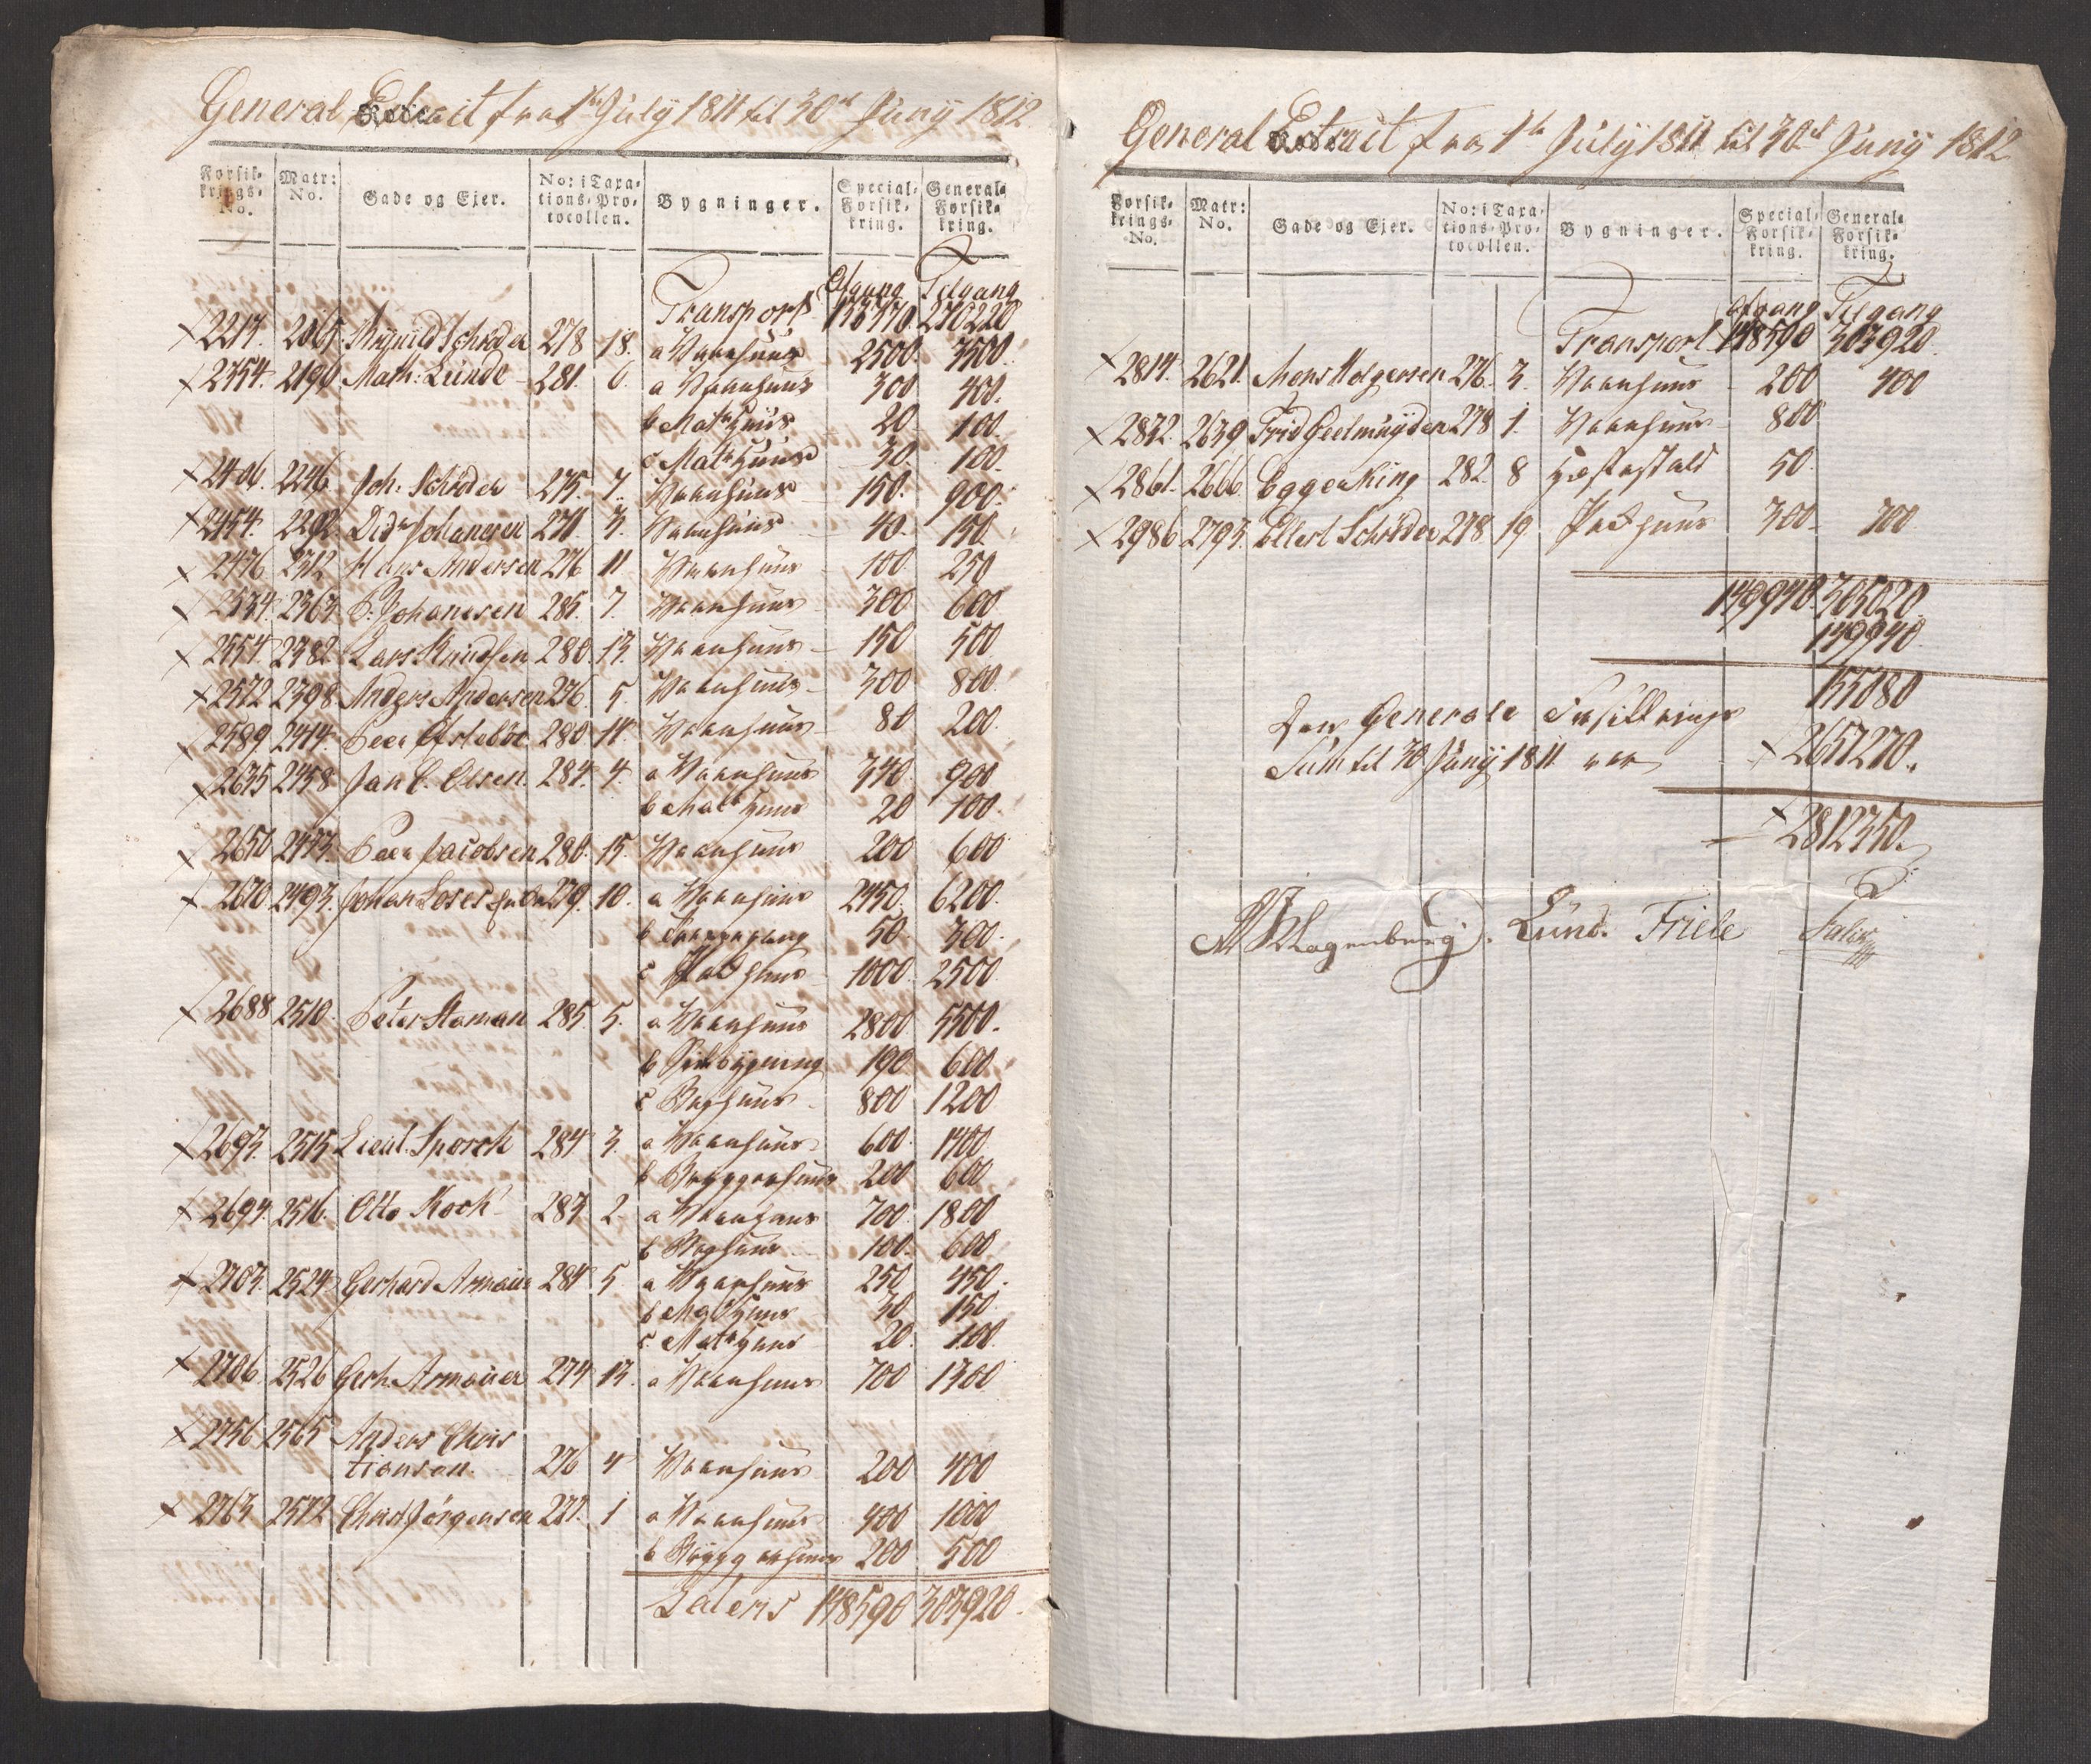 General Extract fra 1te July 1811 til 30te Juny 1812
Forsik-
krings-
No.
Matr:
No.
Gade og Ejer.
No: i Taxa-
tions-Pro-
tocollen.
Bygninger.
Special-
Forsik-
kring.
General-
Forsik-
kring.
Afgang Tilgang
Transport 270220
2214. 2067 Schrøder 278 18. a Vaanhuus 2500. 3500.
2354. 2190 Math: Lünde 281. 6. a Vaanhuus 300 400.
b Mat Huus 20. 100.
c Mat Huus 30. 100.
2406. 2246 Joh: Schröder 275. 7. Vaanhuus 150. 900.
2454. 2292. Didr Johanesen 271. 3. Vaanhuus 40. 150.
2476 2312 Hans Andersen 276 11 Vaanhuus 100 250
2534. 2363. P: Johanesen 285. 7. Vaanhuus 300 600
2554. 2382 Lars Knudsen 280. 13. Vaanhuus 150 500
2572 2398 Anders Andersen 276. 5. Vaanhuus 300 800.
2589 2414. Peer 280 11. Vaanhuus 80 200.
2635 2458 Jan C. Olsen. 284. 4. a Vaanhuus 340. 900
b Mat Huus 20 100.
2650 2473. Peer Jacobsen 280. 15. Vaanhuus 200 600
2670. 2493. Johan Loses 279. 10. a Vaanhuus 2450. 6200.
b 50 300.
c Pakhuus 1000. 2500.
2688 2510. Peter Haman 285. 5. a Vaanhuus 2800 5500.
b Sidebygning 190. 600.
c Baghuus 800 1200
2693. 2515 Lieut. Sporck 284 3. a Vaanhuus 600. 1400.
b Bryggerhuus 200 600
2694. 2516. Otto Koch 284 2 a Vaanhuus 700 1800
b Baghuus 100. 600
2703. 2524 Gerhard Armauer 284 5 a Vaanhuus 250 450.
b Mat Huus 30 150
c Mat Huus 20. 100.
2706. 2526 Gerh. Armauer 274 13. a Vaanhuus 700 1300
2756 2565 Anders Chris
tiansen. 276 4 Vaanhuus 200 400
2763 2572 Christ Jörgensen 277. 1 a Vaanhuus 400 1000
b Bryggerhuus 200 500
Lateris 148590 303920.
General Extract fra 1te July 1811 til 30te Juny 1812
Forsik-
krings-
No.
Matr:
No.
Gade og Ejer.
No: i Taxa-
tions-Pro-
tocollen.
Bygninger.
Special-
Forsik-
kring.
General-
Forsik-
kring.
Afgang Tilgang
Transport 148590 303920.
2814. 2621. Mons Holgersen 276. 3. Vaanhuus 200 400
2832. 2639 Frid Geelmuÿden 278 1. Vaanhuus 800
2861. 2666. Egger King 282. 8 Hestestald 50.
2986 2793. Ellert Schröder 278 19 Pakhuus 300 700
149940. 305020.
149940.
155080
Den Generale Forsikkrings
Sum til 30 Juny 1811 var 2657270.
2812350.
Hagenburg. Lünd. Friele